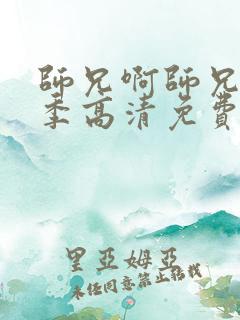 師兄啊師兄
季高清免費
里亞姆亞
未經同意禁止轉載